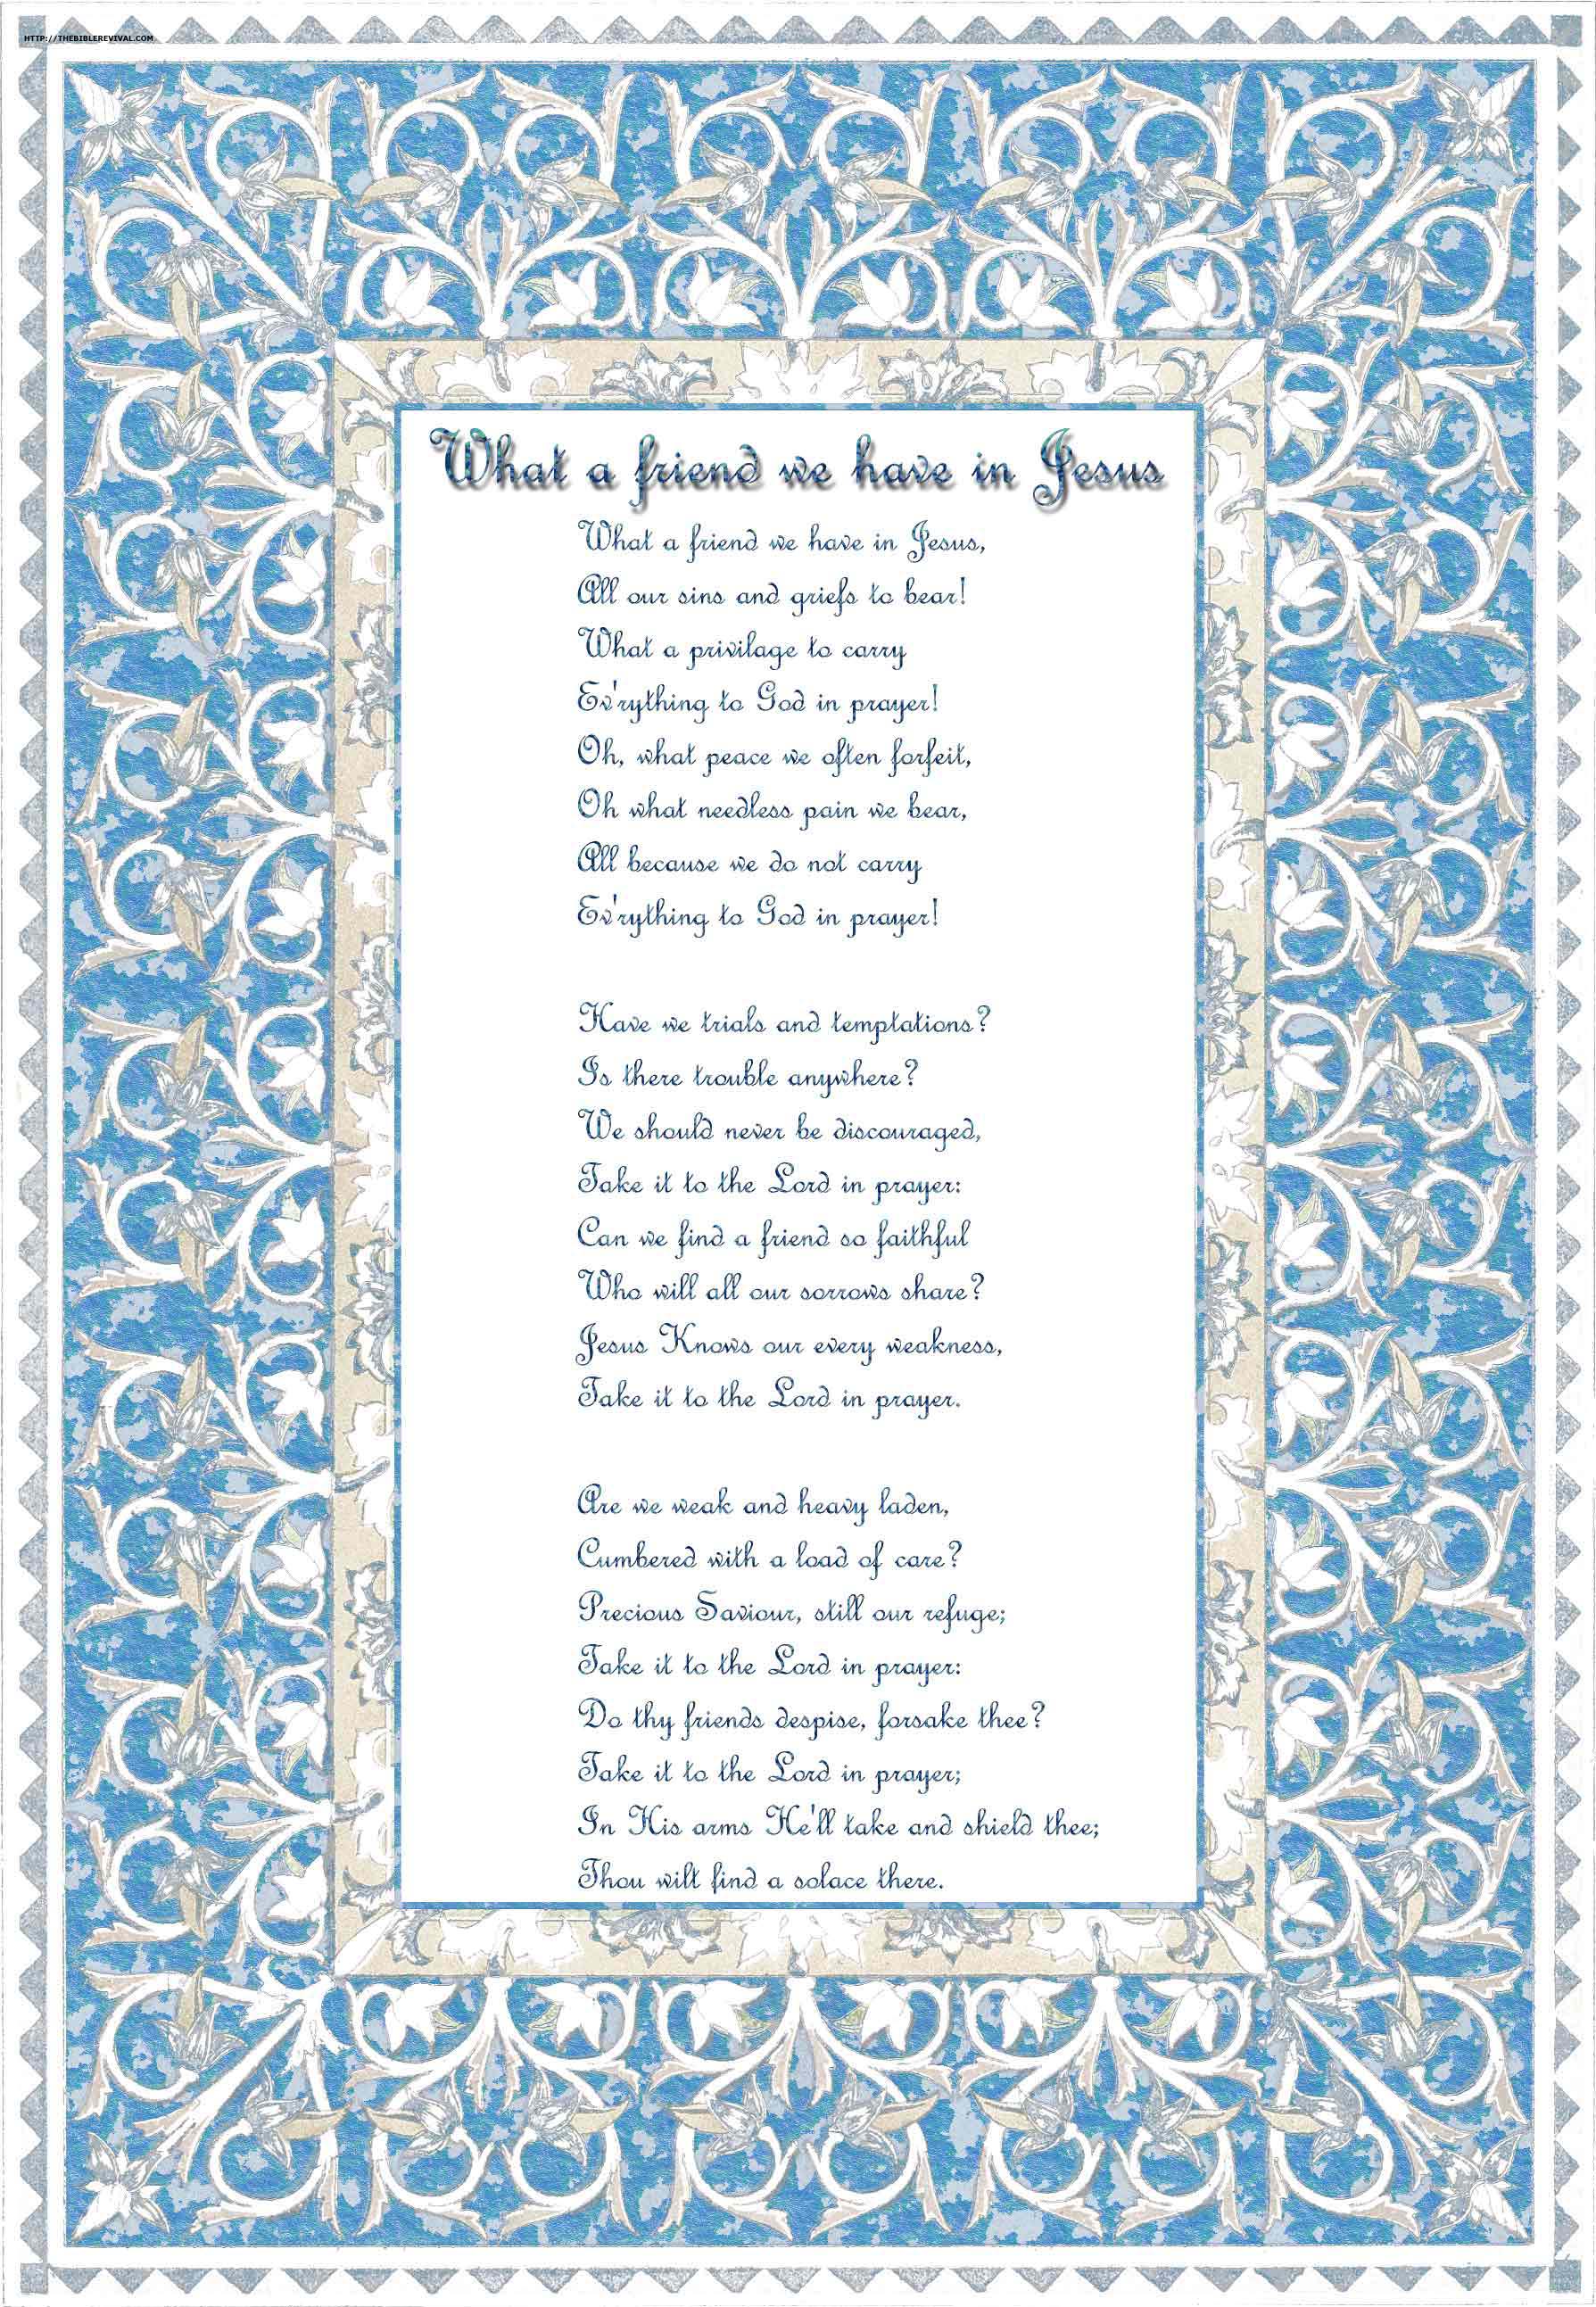 HTTP://THEBIBLEREVIVAL.COM
What a friend we have in Jesus
What a friend we have in Jesus,
All our sins and griefs to bear!
What a privilage to carry
Ev'rything to God in prayer!
Oh, what peace we often forfeit,
Oh what needless pain we bear,
All because we do not carry
Ev'rything to God in prayer!
Have we trials and temptations?
Is there trouble anywhere?
We should never be discouraged,
Take it to the Lord in prayer:
Can we find a friend so faithful
Who will all our sorrows share?
Jesus Knows our every weakness,
Take it to the Lord in prayer.
Are we weak and heavy laden,
Cumbered with a load of care?
Precious Saviour, still our refuge;
Take it to the Lord in prayer:
Do thy friends despise, forsake thee?
Take it to the Lord in prayer;
In His arms He'll take and shield thee;
Thou wilt find a solace there.